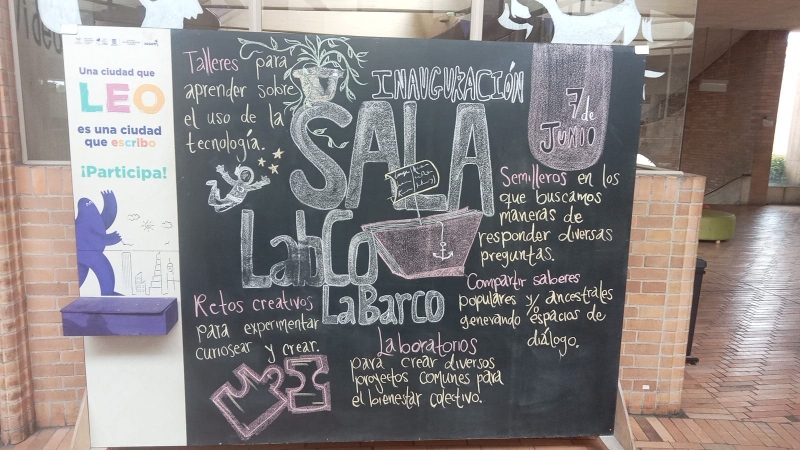 Una ciudad que
LEO
es una ciudad
que escribo
¡Participa!
Talleres para
aprender sobre
el uso de la
tecnología.
INAUGURACIÓN
SALA
LabCo
LaBarco
7 de
JUNIO
Semilleros en los
que buscamos
maneras de
responder diversas
preguntas.
Compartir saberes
populares y/o ancestrales
generando espacios de
diálogo.
Retos creativos
para experimentar
curiosear y crear.
Laboratorios
para crear diversos
proyectos comunes para
el bienestar colectivo.